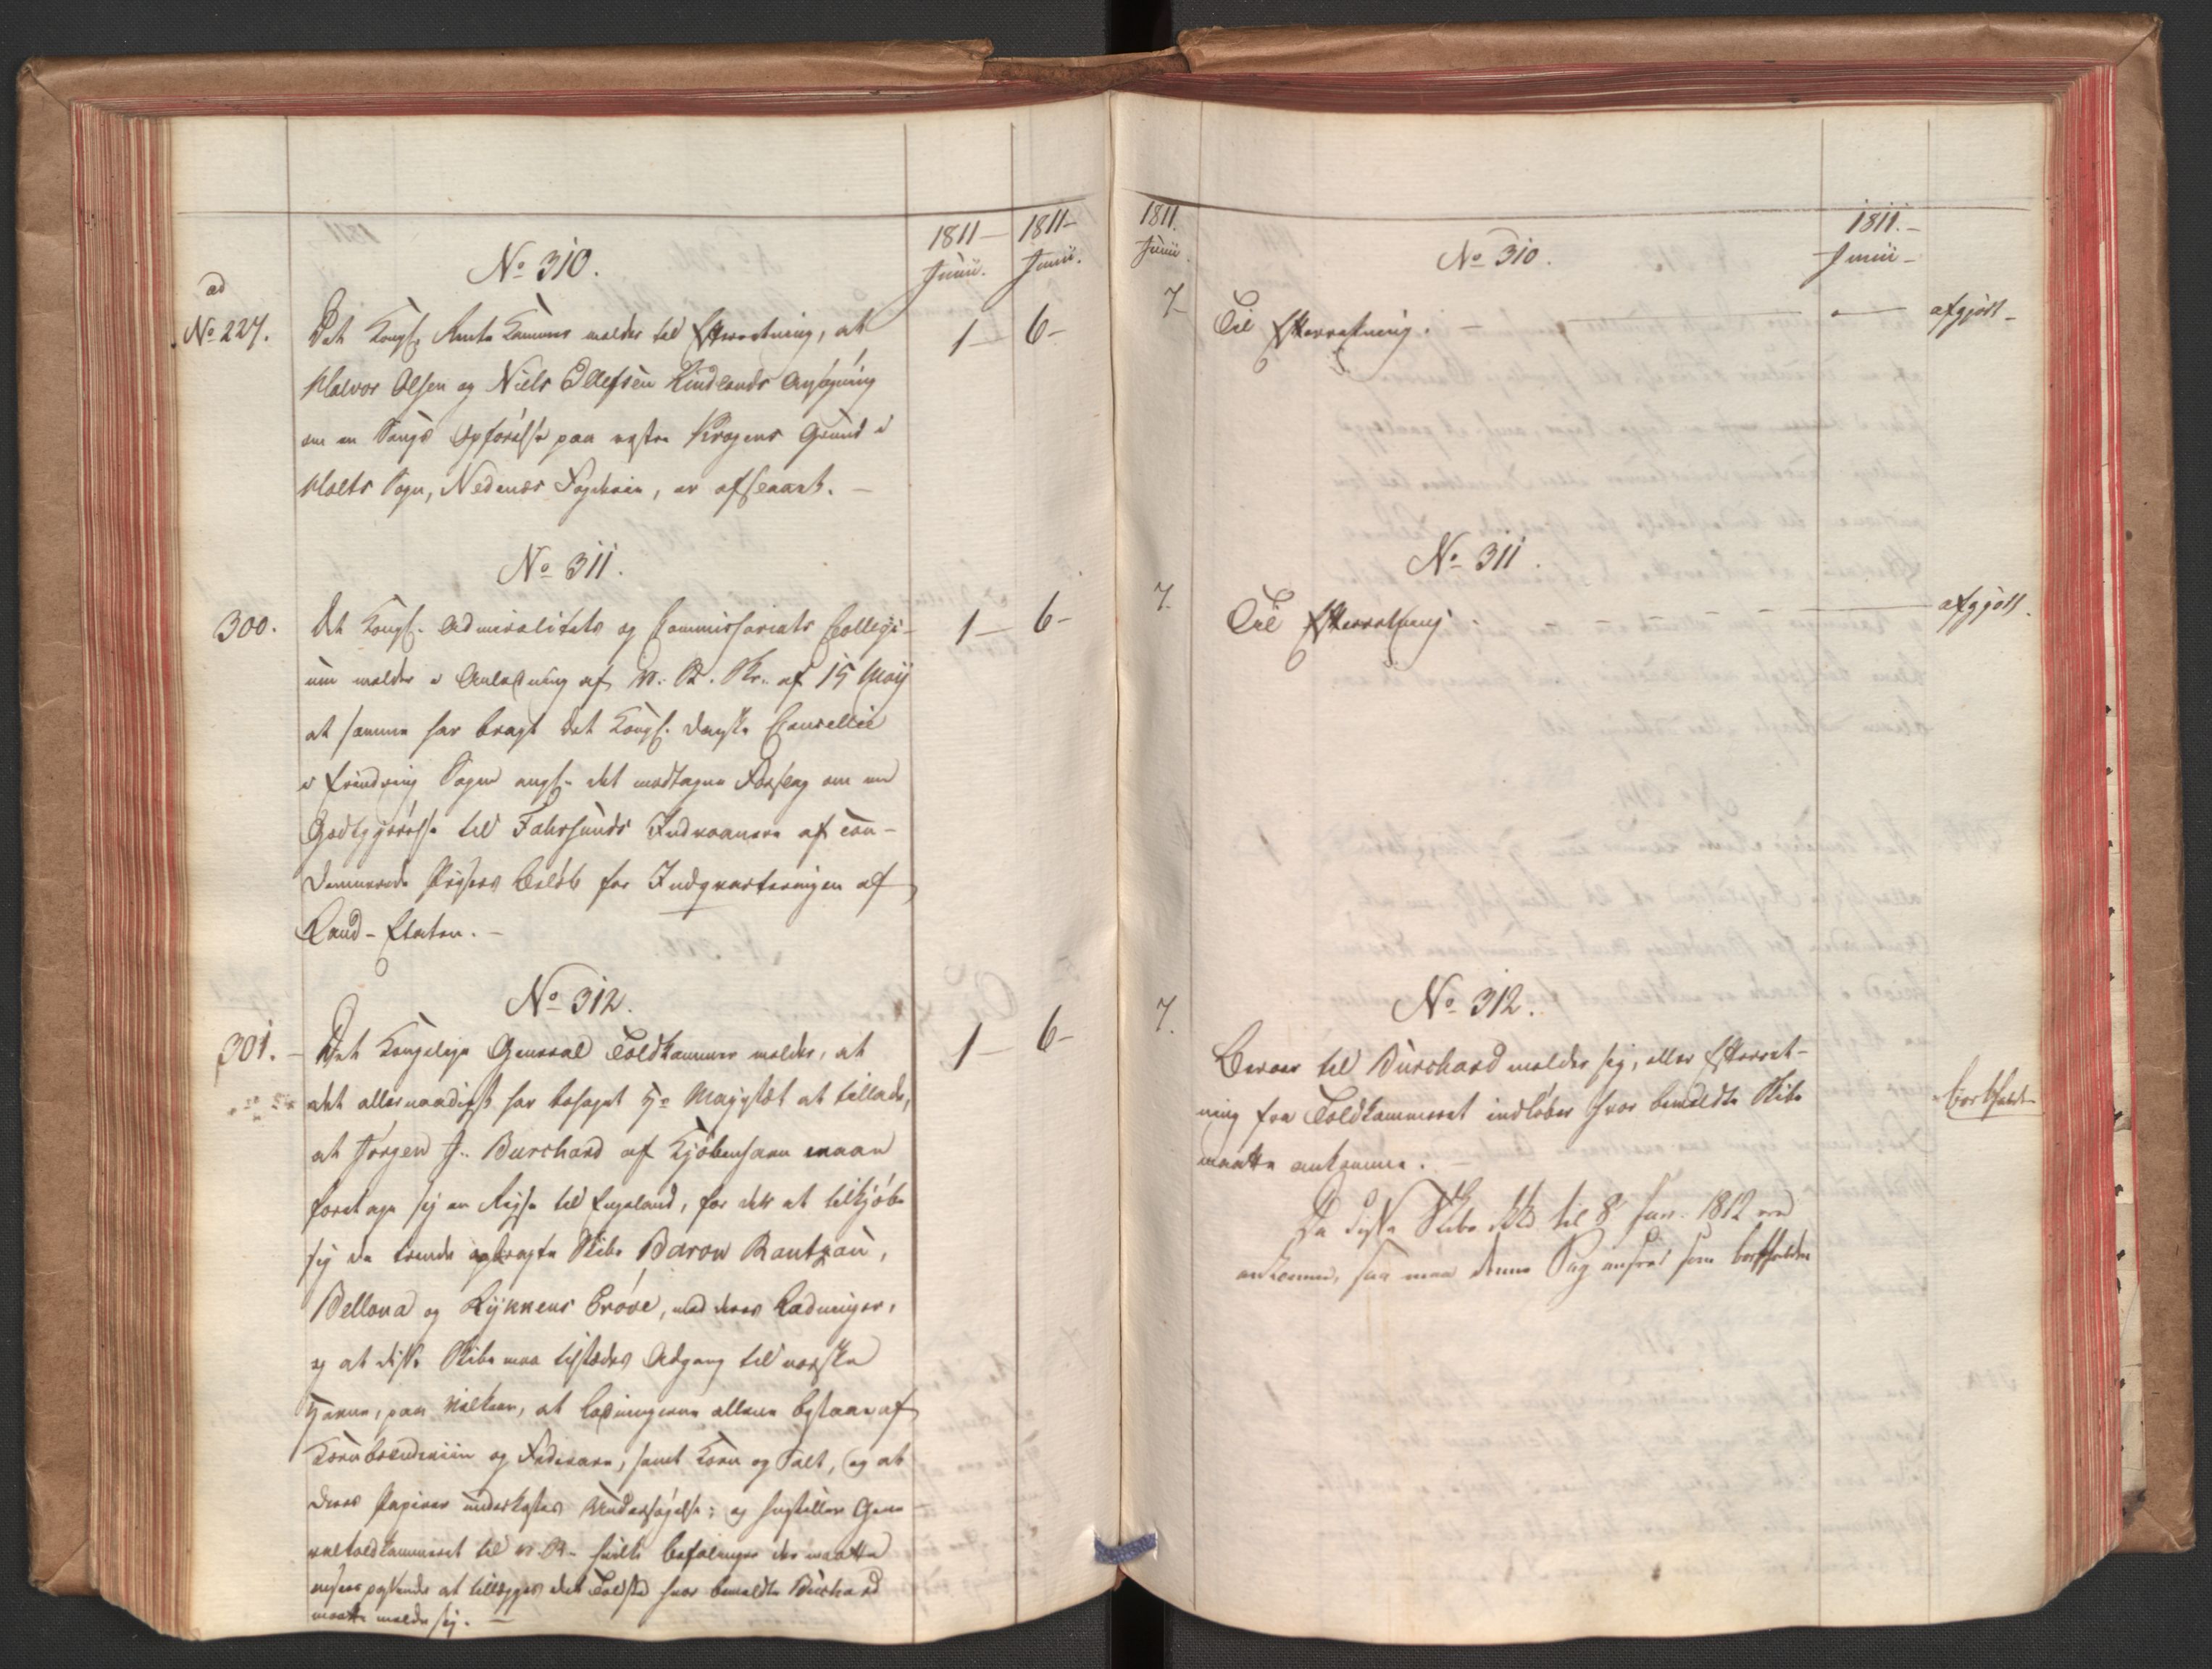 1811 – 1811 –
Junii. Junii.
No 310.
ad
No 227. Det Kongl. Rente Kammer melder til Efterretning, at 1 – 6 –
Halvor Olsen og Niels Ellefsen Kindlands Ansøgning
om en Saugs Opførelse paa vestre Krogens Grund i
Holts Sogn, Nedenes Fogderie, er afslaaet. –
No 311.
300. Det Kongl. Admiralitets og Commissariats Collegi- 1 – 6 –
um melder i Anledning af R: C. Skr. af 15 Maij
at samme har bragt det Kongl. danske Cancellie
i Erindring Sagen angl. det modtagne Forslag om en
Godtgjørelse til Fahrsunds Indvaanere af con-
demnerede Prisers Beløb for Indqvarteringen af
Land-Etaten. –
No 312.
301. – Det Kongelige General Toldkammer melder, at 1 – 6 –
det allernaadigst har behaget Hs Majestæt at tillade,
at Jørgen J. Burchard af Kjøbenhavn maae
foretage sig en Rejse til Engeland, for der at tilkjøbe
sig de trende opbragte Skibe Baron Rantzau,
Bellona og Lykkens Prøve, med deres Ladninger,
og at disse Skibe maa tilstædes Adgang til norske
Havne, paa Vilkaar, at Ladningerne allene bestaae af
Kornbrændeviin og Fedevare, samt Korn og Salt, og at
deres Papirer underkastes Undersøgelse; og henstiller Gene
raltoldkammeret til R. C. hvilke Befalinger der maatte
ansees passende at tillægges det Toldsted hvor bemeldte Burchard
maatte melde sig. –
1811. 1811. –
Junii Junii –
No 310.
7 – Til Efterretning. – afgjort –
No 311.
7. Til Efterretning. afgjort.
No 312.
7. Beroer til Burchard melder sig, eller Efterret-
ning fra Toldkammeret indløber hvor bemeldte Skibe bortfaldt
maatte ankomme. –
Da disse Skibe ikke til 8 Jan. 1812 ere
ankomne, saa maa denne Sag ansees som bortfalden